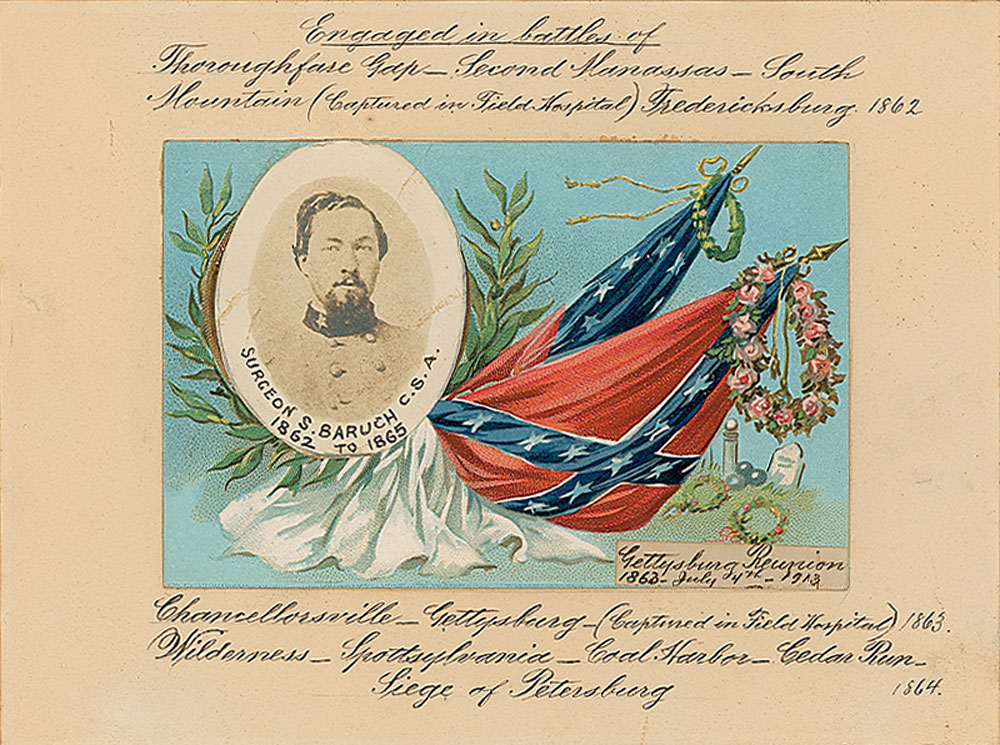 Engaged in battles of
Thoroughfare Gap – Second Manassas – South
Mountain (Captured in Field Hospital) Fredericksburg 1862
SURGEON S. BARUCH C.S.A.
1862 TO 1865
Gettysburg Reunion
1863 - July 4th - 1913
Chancellorsville – Gettysburg – (Captured in Field Hospital) 1863.
Wilderness – Spottsylvania – Coal Harbor – Cedar Run –
Siege of Petersburg 1864.